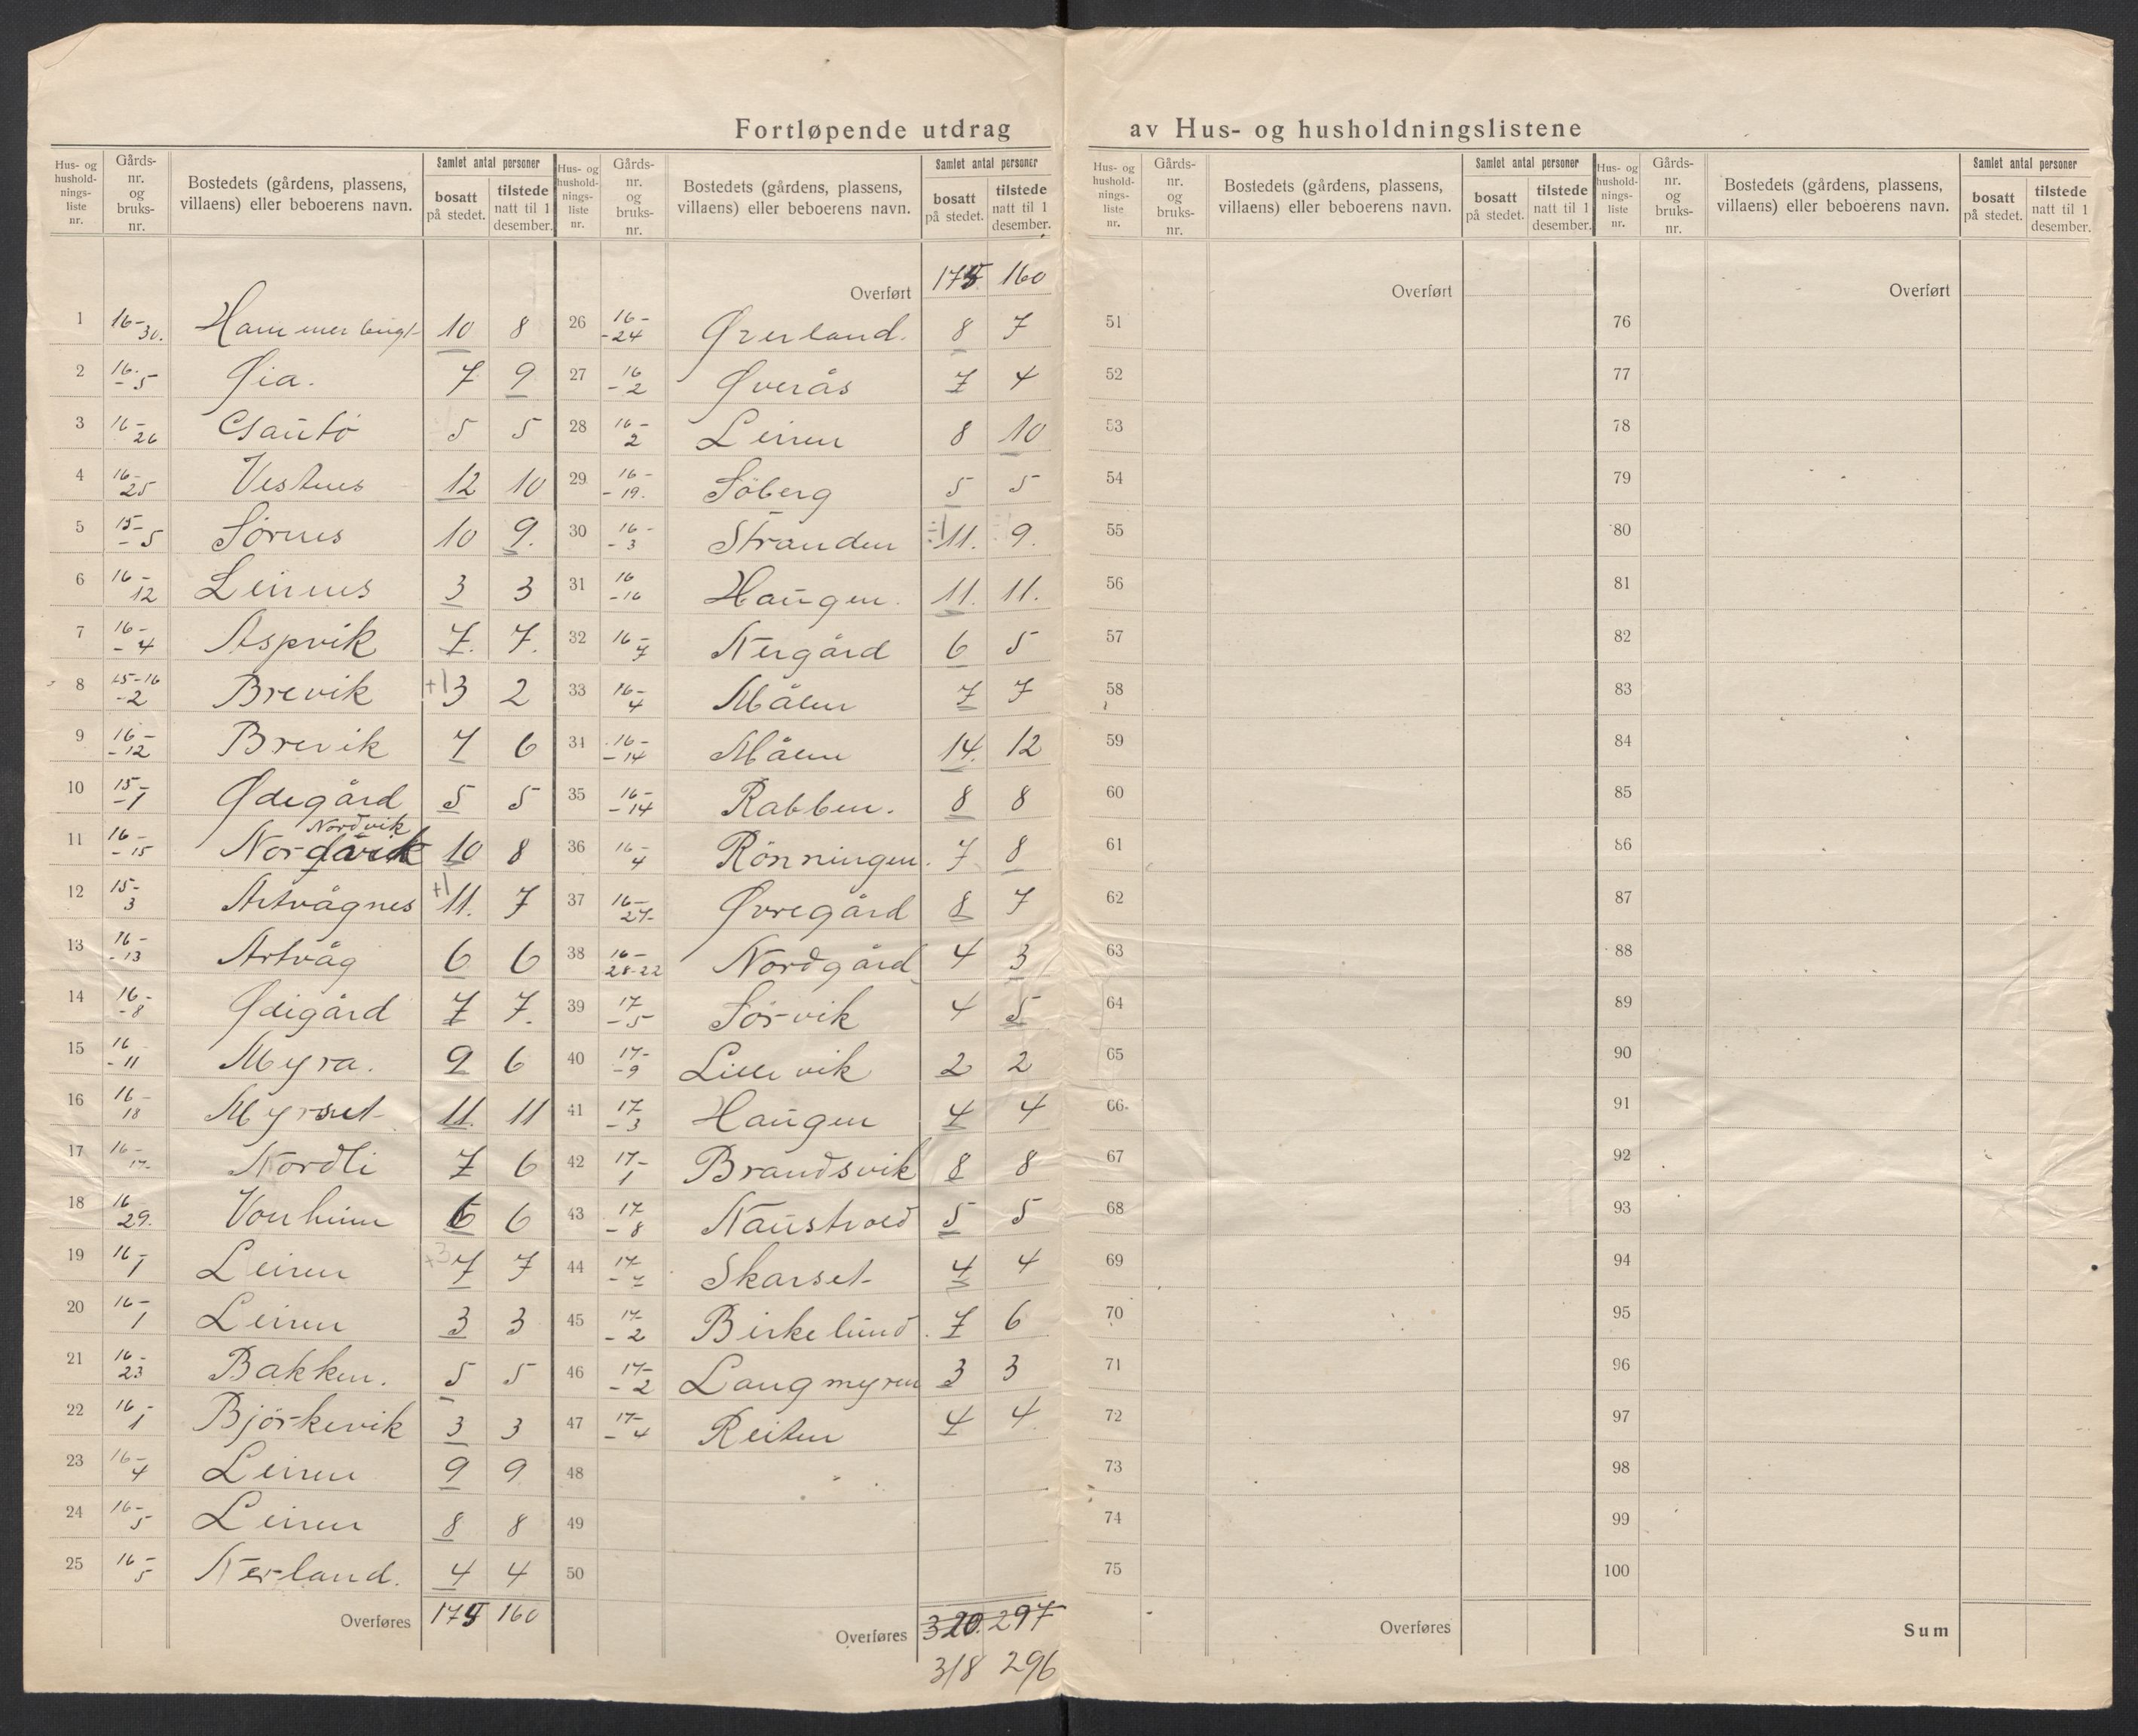 Fortløpende utdrag av Hus- og husholdningslistene
Hus- og husholdnings-liste nr. Gårds-nr. og bruks-nr. Bostedets (gårdens, plassens, villaens) eller beboerens navn. Samlet antal personer bosatt på stedet. tilstede natt til 1 desember.
Hus- og husholdnings-liste nr. Gårds-nr. og bruks-nr. Bostedets (gårdens, plassens, villaens) eller beboerens navn. Samlet antal personer bosatt på stedet. tilstede natt til 1 desember.
Hus- og husholdnings-liste nr. Gårds-nr. og bruks-nr. Bostedets (gårdens, plassens, villaens) eller beboerens navn. Samlet antal personer bosatt på stedet. tilstede natt til 1 desember.
Hus- og husholdnings-liste nr. Gårds-nr. og bruks-nr. Bostedets (gårdens, plassens, villaens) eller beboerens navn. Samlet antal personer bosatt på stedet. tilstede natt til 1 desember.
1 16-30. 10 8
2 16-5 Øia. 7 9
3 16-26 5 5
4 16-25 Vestnes 12 10
5 15-5 Sørnes 10 9.
6 16-12 Leirnes 3 3
7 16-4 Aspvik 7. 7.
8 15-16-2 Brevik +1 3 2
9 16-12 Brevik 7 6
10 15-1 Ødegård 5 5
11 16-15 Nordvik 10 8
12 15-3 Artvågnes +1 11. 7
13 16-13 Artvåg 6 6
14 16-8 Ødegård 7 7.
15 16-11 Myra. 9 6
16 16-18 Myrset 11. 11
17 16-17- Nordli 7 6
18 16-29. Vonheim 6 6
19 16-1 Leiren +3 7 7
20 16-1 Leiren 3 3
21 16-23 Bakken. 5 5
22 16-1 Björkevik 3 3
23 16-4 Leiren 9 9
24 16-5 Leiren 8 8
25 16-5 Nerland. 4 4
Overføres 175 160
Overført 175 160
26 16-24 Øverland. 8 7
27 16-2 Øverås 7 4
28 16-2 Leiren 8 10
29 16-19. Söberg 5 5
30 16-3 Stranden 11. 9.
31 16-16 Haugen. 11. 11.
32 16-7 Nergård 6 5
33 16-4 Målen 7 7
34 16-14 Målen 14. 12
35 16-14 Rabben. 8 8
36 16-4 Rönningen. 7 8
37 16-27- Øvregård 8 7
38 16-28-22 Nordgård 4 3
39 17-5 Sörvik 4 5
40 17-9 Lillevik 2 2
41 17-3 Haugen 4 4
42 17-1 Brandsvik 8 8
43 17-8 Naustvold 5 5
44 17-7 Skarset 4 4
45 17-2 Birkelund. 7 6
46 17-2 Langmyren 3 3
47 17-4 Reiten 4 4
48
49
50
Overføres 320. 297
318 296
Overført
51
52
53
54
55
56
57
58
59
60
61
62
63
64
65
66
67
68
69
70
71
72
73
74
75
Overføres
Overført
76
77
78
79
80
81
82
83
84
85
86
87
88
89
90
91
92
93
94
95
96
97
98
99
100
Sum